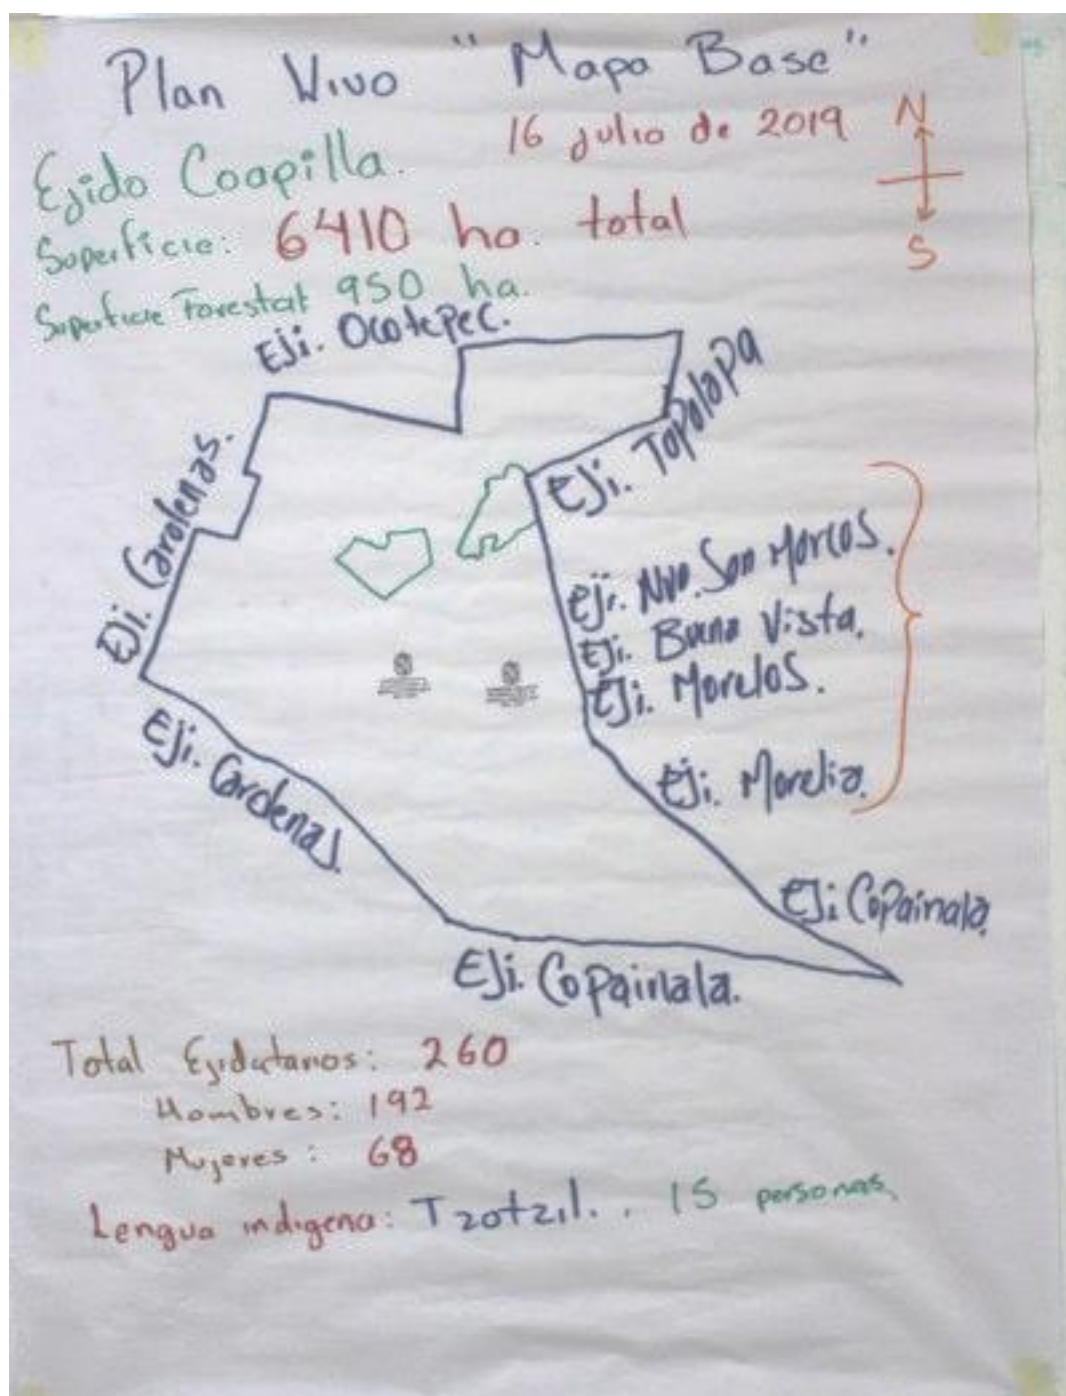 Plan Vivo "Mapa Base"
16 julio de 2019
N
S
Ejido Coapilla.
Superficie: 6410 ha. total
Superficie Forestal 950 ha.
Eji. Ocotepec.
Eji. Topalapa
Eji. Cardenas.
Eji. Nvo. San Marcos.
Eji. Buena Vista.
Eji. Morelos.
Eji. Morelia.
Eji. Cardenas.
Eji Copainala.
Eji. Copainala.
Total Ejidatarios: 260
Hombres: 192
Mujeres: 68
Lengua indigena: Tzotzil. . 15 personas.